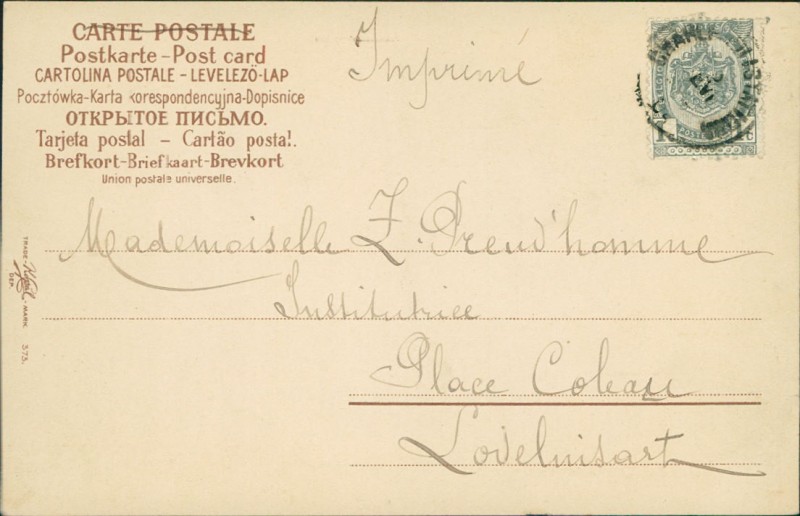 CARTE POSTALE
Postkarte - Post card
CARTOLINA POSTALE - LEVELEZÖ-LAP
Pocztówka - Karta korespondencyjna - Dopisnice
ОТКРЫТОЕ ПИСЬМО.
Tarjeta postal - Cartão postal.
Brefkort - Briefkaart - Brevkort
Union postale universelle.
Imprimé
Mademoiselle Z. Preud'homme
Institutrice
Place
Lodelinsart
TRADE-
MARK.
DEP.
373.